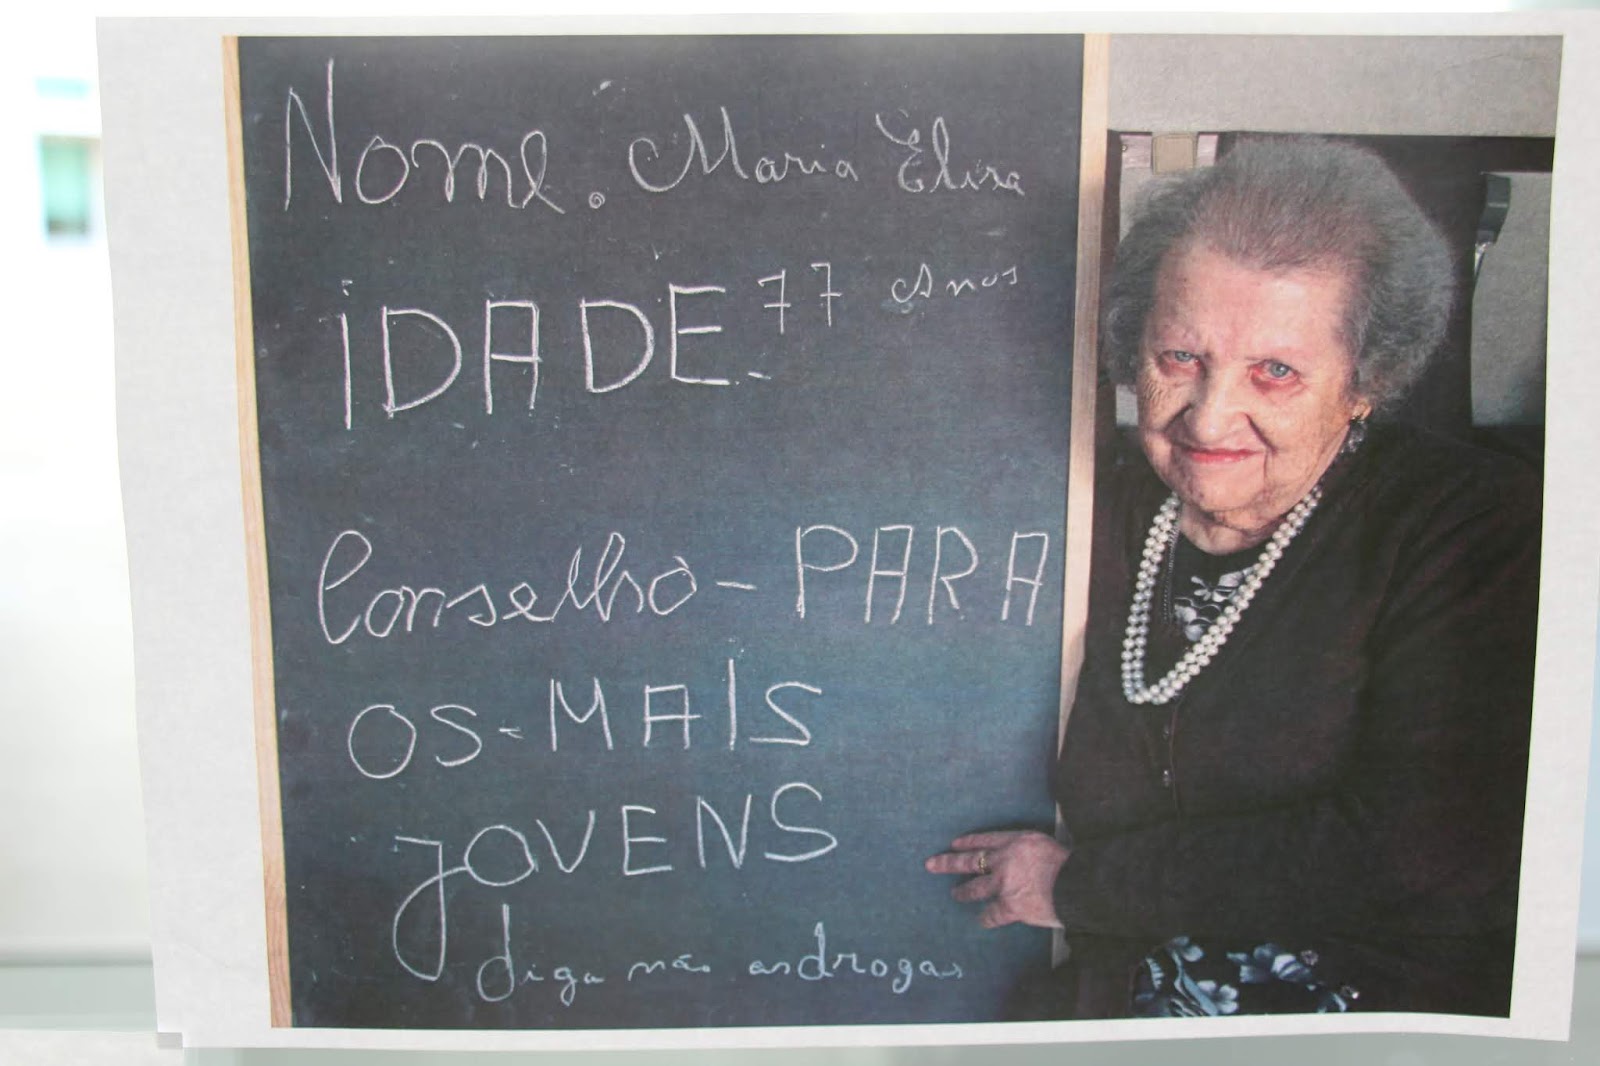 Nome: Maria Elisa
IDADE- 77 Anos
Conselho- PARA
OS-MAIS
JOVENS
diga não as drogas